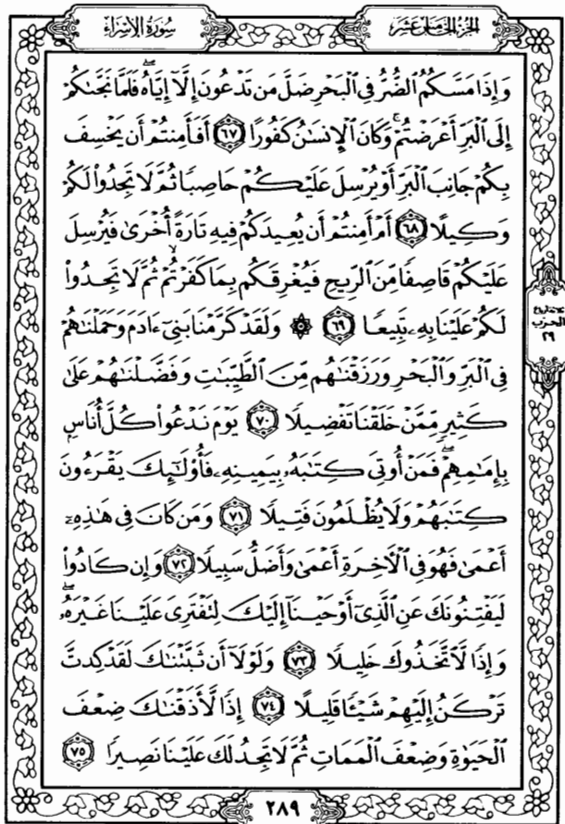 الجزء الخامس عشر
سورة الإسراء
وَإِذَا مَسَّكُمُ ٱلضُّرُّ فِى ٱلْبَحْرِ ضَلَّ مَن تَدْعُونَ إِلَّآ إِيَّاهُ ۖ فَلَمَّا نَجَّىٰكُمْ
إِلَى ٱلْبَرِّ أَعْرَضْتُمْ ۚ وَكَانَ ٱلْإِنسَـٰنُ كَفُورًا ٦٧ أَفَأَمِنتُمْ أَن يَخْسِفَ
بِكُمْ جَانِبَ ٱلْبَرِّ أَوْ يُرْسِلَ عَلَيْكُمْ حَاصِبًا ثُمَّ لَا تَجِدُوا۟ لَكُمْ
وَكِيلًا ٦٨ أَمْ أَمِنتُمْ أَن يُعِيدَكُمْ فِيهِ تَارَةً أُخْرَىٰ فَيُرْسِلَ
عَلَيْكُمْ قَاصِفًا مِّنَ ٱلرِّيحِ فَيُغْرِقَكُم بِمَا كَفَرْتُمْ ۙ ثُمَّ لَا تَجِدُوا۟
لَكُمْ عَلَيْنَا بِهِۦ تَبِيعًا ٦٩ ۞ وَلَقَدْ كَرَّمْنَا بَنِىٓ ءَادَمَ وَحَمَلْنَـٰهُمْ
فِى ٱلْبَرِّ وَٱلْبَحْرِ وَرَزَقْنَـٰهُم مِّنَ ٱلطَّيِّبَـٰتِ وَفَضَّلْنَـٰهُمْ عَلَىٰ
كَثِيرٍ مِّمَّنْ خَلَقْنَا تَفْضِيلًا ٧٠ يَوْمَ نَدْعُوا۟ كُلَّ أُنَاسٍۭ
بِإِمَـٰمِهِمْ ۖ فَمَنْ أُوتِىَ كِتَـٰبَهُۥ بِيَمِينِهِۦ فَأُو۟لَـٰٓئِكَ يَقْرَءُونَ
كِتَـٰبَهُمْ وَلَا يُظْلَمُونَ فَتِيلًا ٧١ وَمَن كَانَ فِى هَـٰذِهِۦٓ
أَعْمَىٰ فَهُوَ فِى ٱلْـَٔاخِرَةِ أَعْمَىٰ وَأَضَلُّ سَبِيلًا ٧٢ وَإِن كَادُوا۟
لَيَفْتِنُونَكَ عَنِ ٱلَّذِىٓ أَوْحَيْنَآ إِلَيْكَ لِتَفْتَرِىَ عَلَيْنَا غَيْرَهُۥ ۖ
وَإِذًا لَّٱتَّخَذُوكَ خَلِيلًا ٧٣ وَلَوْلَآ أَن ثَبَّتْنَـٰكَ لَقَدْ كِدتَّ
تَرْكَنُ إِلَيْهِمْ شَيْـًٔا قَلِيلًا ٧٤ إِذًا لَّأَذَقْنَـٰكَ ضِعْفَ
ٱلْحَيَوٰةِ وَضِعْفَ ٱلْمَمَاتِ ثُمَّ لَا تَجِدُ لَكَ عَلَيْنَا نَصِيرًا ٧٥
الحزب
٢٩
٢٨٩